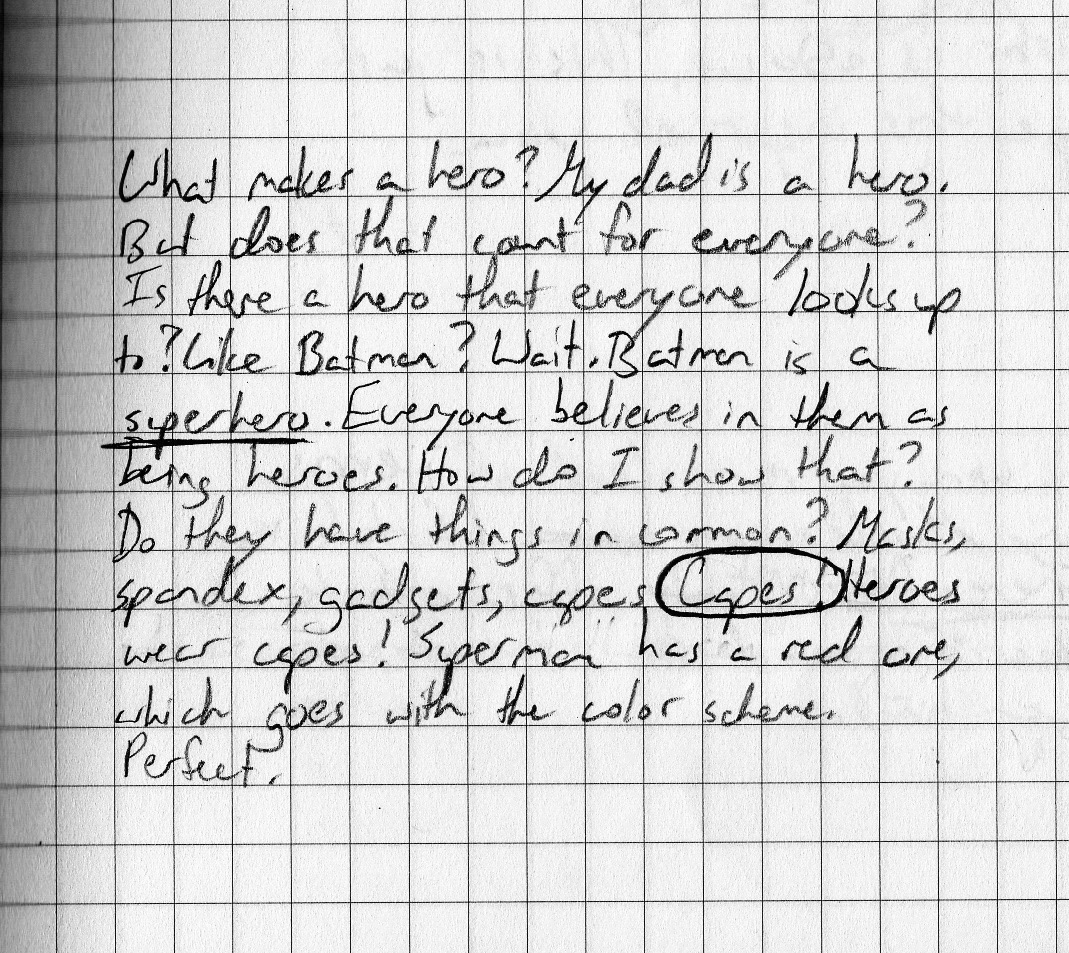 What makes a hero? My dad is a hero.
But does that count for everyone?
Is there a hero that everyone looks up
to? Like Batman? Wait. Batman is a
superhero. Everyone believes in them as
being heroes. How do I show that?
Do they have things in common? Masks,
spandex, gadgets, capes Capes! Heroes
wear capes! Superman has a red one,
which goes with the color scheme.
Perfect.